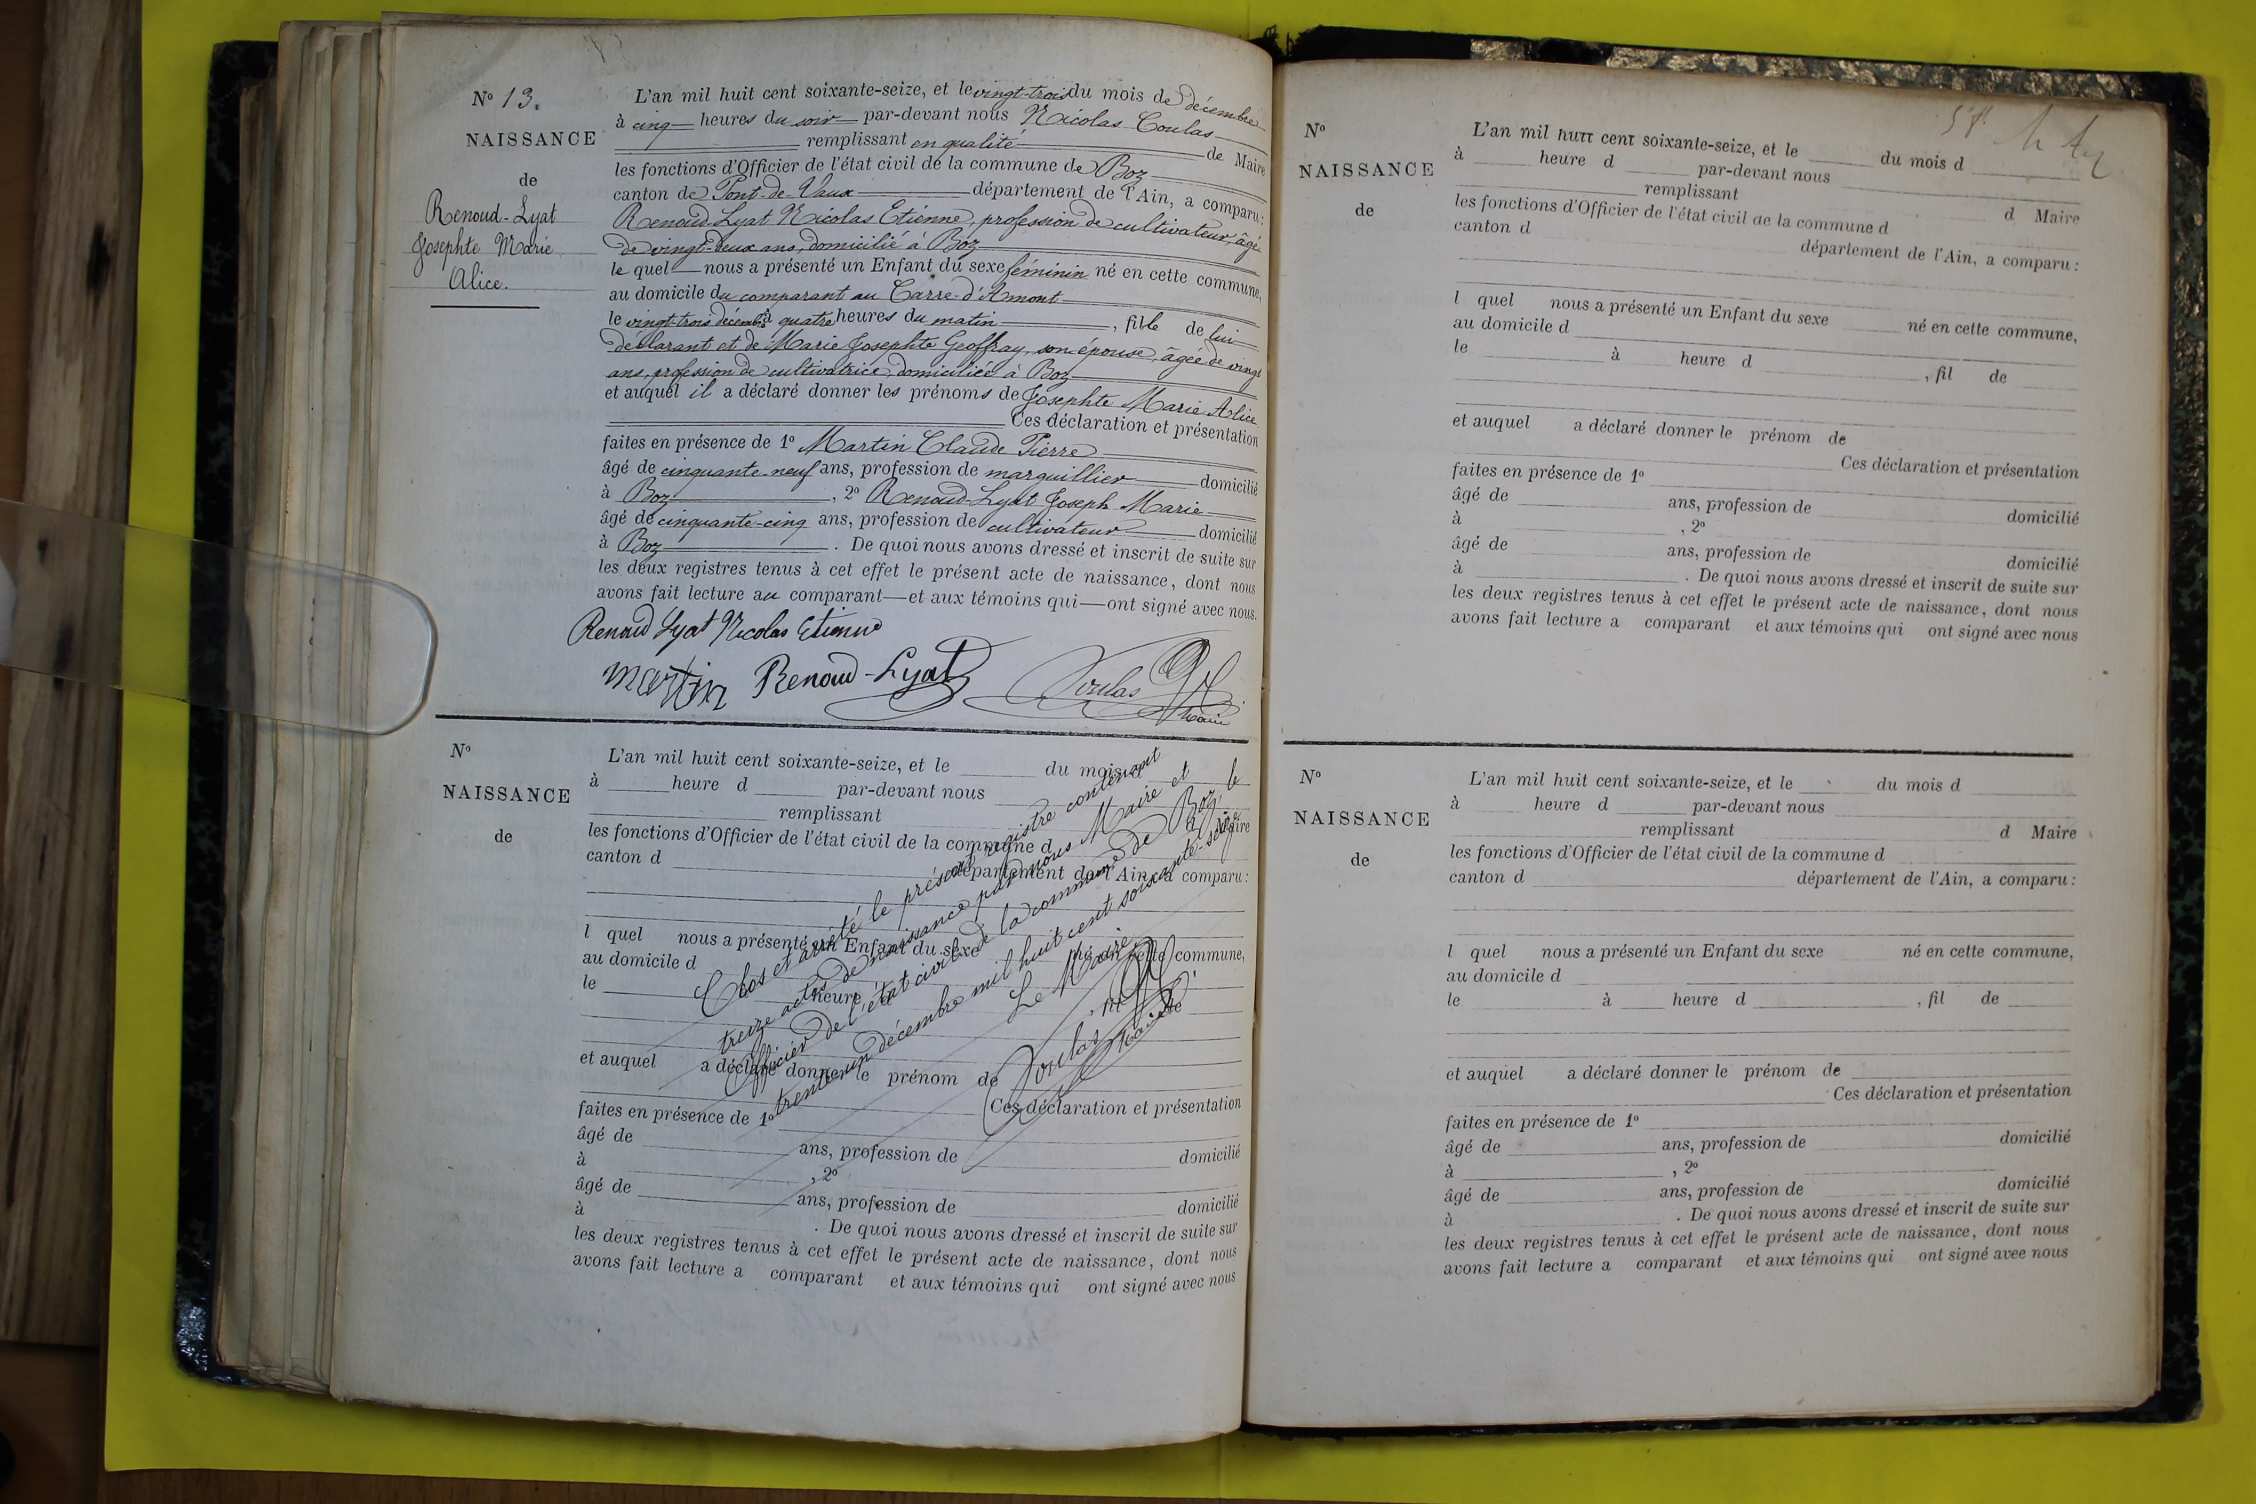 N° 13.
NAISSANCE
de
Renoud-Lyat
Josephte Marie
Alice.
L'an mil huit cent soixante-seize, et le vingt-trois du mois de décembre
à cinq heures du soir par-devant nous Nicolas Coulas
remplissant en qualité de Maire
les fonctions d'Officier de l'état civil de la commune de Boz
canton de Pont-de-Vaux département de l'Ain, a comparu:
Renoud-Lyat Nicolas Etienne, profession de cultivateur, âgé
de vingt-deux ans, domicilié à Boz
le quel nous a présenté un Enfant du sexe féminin né en cette commune,
au domicile du comparant au Carre-d'Amont
le vingt-trois décembre à quatre heures du matin, fille de lui
déclarant et de Marie Josephte Geoffray, son épouse, âgée de vingt
ans, profession de cultivatrice, domiciliée à Boz
et auquel il a déclaré donner les prénoms de Josephte Marie Alice
Ces déclaration et présentation
faites en présence de 1° Martin Claude Pierre
âgé de cinquante-neuf ans, profession de marguillier domicilié
à Boz, 2° Renoud-Lyat Joseph Marie
âgé de cinquante-cinq ans, profession de cultivateur domicilié
à Boz. De quoi nous avons dressé et inscrit de suite sur
les deux registres tenus à cet effet le présent acte de naissance, dont nous
avons fait lecture au comparant et aux témoins qui ont signé avec nous.
Renoud Lyat Nicolas Etienne
Martin Renoud-Lyat Coulas
Maire
N°
NAISSANCE
de
L'an mil huit cent soixante-seize, et le du mois d
à heure d par-devant nous
remplissant d Maire
les fonctions d'Officier de l'état civil de la commune d
canton d département de l'Ain, a comparu:
l quel nous a présenté un Enfant du sexe né en cette commune,
au domicile d
le à heure d , fil de
et auquel a déclaré donner le prénom de
Ces déclaration et présentation
faites en présence de 1°
âgé de ans, profession de domicilié
à , 2°
âgé de ans, profession de domicilié
à . De quoi nous avons dressé et inscrit de suite sur
les deux registres tenus à cet effet le présent acte de naissance, dont nous
avons fait lecture a comparant et aux témoins qui ont signé avec nous
Clos et arrêté le présent registre contenant
treize actes de naissance par nous Maire et
Officier de l'état civil de la commune de Boz, le
trente-un décembre mil huit cent soixante-seize
Le Maire
Coulas
Maire
N°
NAISSANCE
de
L'an mil huit cent soixante-seize, et le du mois d
à heure d par-devant nous
remplissant d Maire
les fonctions d'Officier de l'état civil de la commune d
canton d département de l'Ain, a comparu:
l quel nous a présenté un Enfant du sexe né en cette commune,
au domicile d
le à heure d , fil de
et auquel a déclaré donner le prénom de
Ces déclaration et présentation
faites en présence de 1°
âgé de ans, profession de domicilié
à , 2°
âgé de ans, profession de domicilié
à . De quoi nous avons dressé et inscrit de suite sur
les deux registres tenus à cet effet le présent acte de naissance, dont nous
avons fait lecture a comparant et aux témoins qui ont signé avec nous
N°
NAISSANCE
de
L'an mil huit cent soixante-seize, et le du mois d
à heure d par-devant nous
remplissant d Maire
les fonctions d'Officier de l'état civil de la commune d
canton d département de l'Ain, a comparu:
l quel nous a présenté un Enfant du sexe né en cette commune,
au domicile d
le à heure d , fil de
et auquel a déclaré donner le prénom de
Ces déclaration et présentation
faites en présence de 1°
âgé de ans, profession de domicilié
à , 2°
âgé de ans, profession de domicilié
à . De quoi nous avons dressé et inscrit de suite sur
les deux registres tenus à cet effet le présent acte de naissance, dont nous
avons fait lecture a comparant et aux témoins qui ont signé avec nous